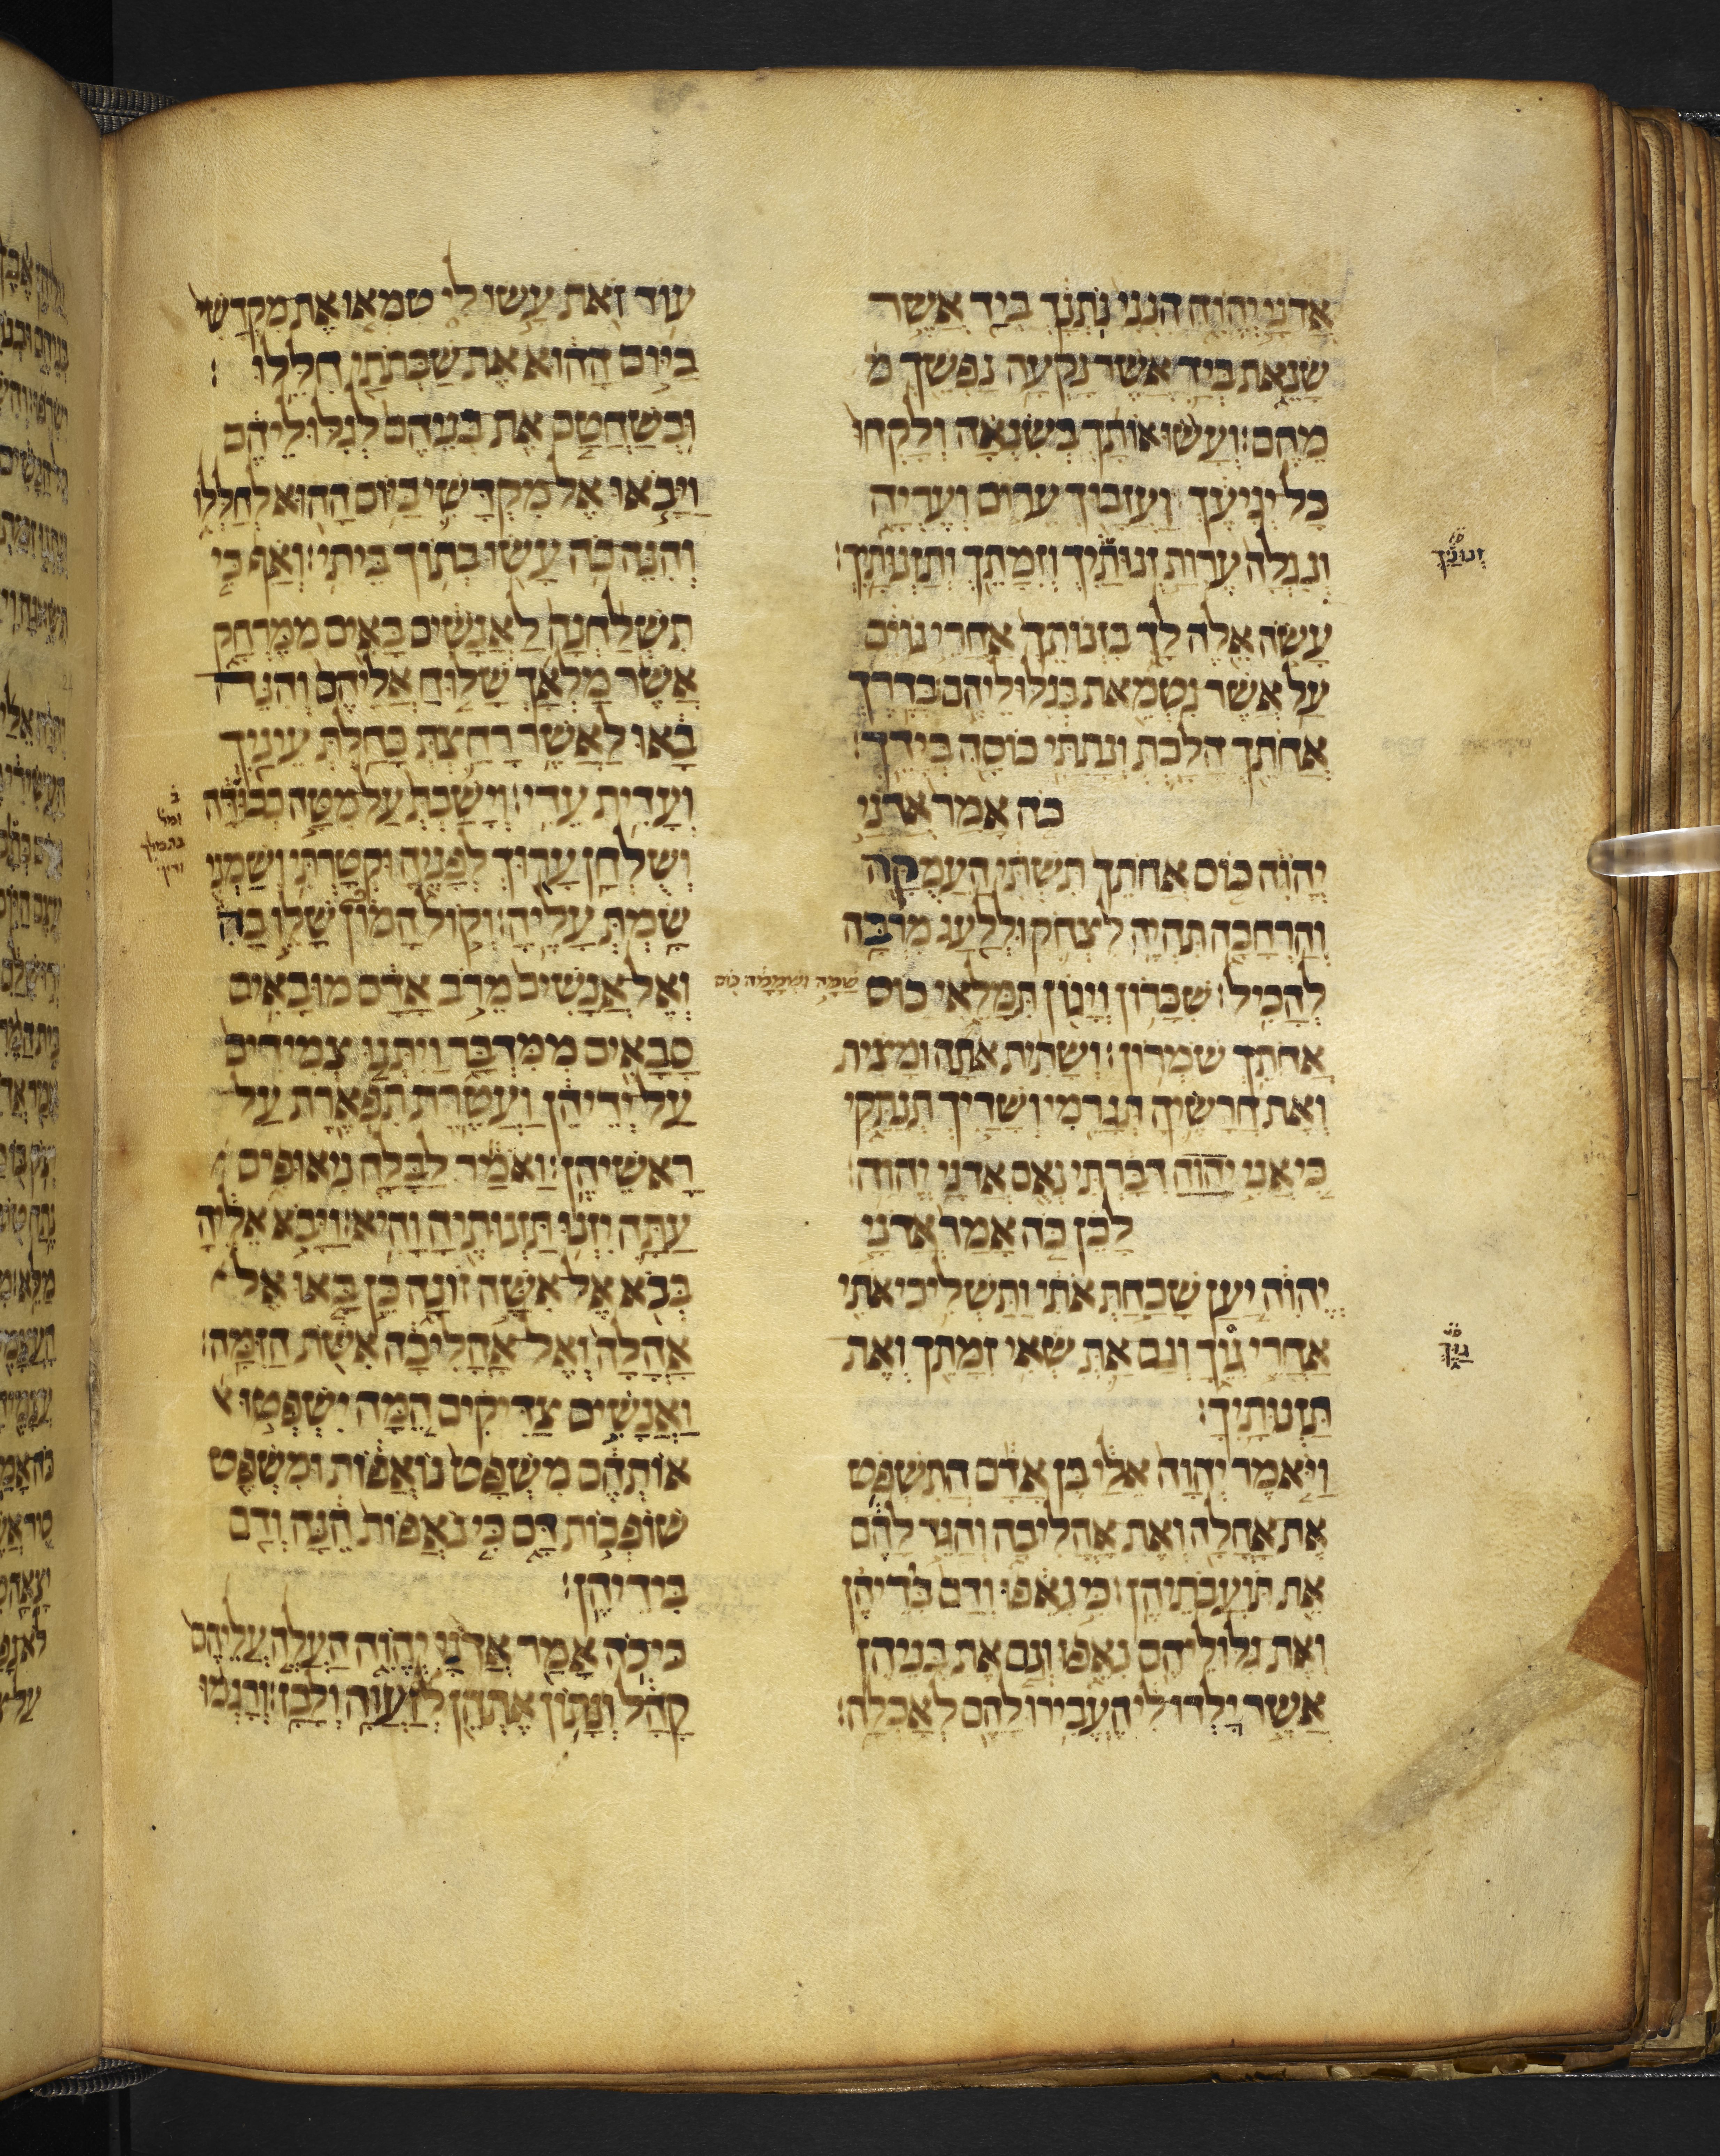 אדני יהוה הנני נתנך ביד אשר
שנאת ביד אשר נקעה נפשך מ
מהם׃ ועשו אותך בשנאה ולקחו
כל יגיעך ועזבוך ערום ועריה
ונגלה ערות זנותיך וזמתך ותזנותיך׃
עשה אלה לך בזנותך אחרי גוים
על אשר נטמאת בגלוליהם׃ בדרך
אחתך הלכת ונתתי כוסה בידך׃
כה אמר אדני
יהוה כוס אחתך תשתי העמקה
והרחבה תהיה לצחק וללעג מרבה
להכיל׃ שכרון ויגון תמלאי כוס
שמה ושממה כוס
אחתך שמרון׃ ושתית אתה ומצית
ואת חרשיה תגרמי ושדיך תנתקי
כי אני יהוה דברתי נאם אדני יהוה׃
לכן כה אמר אדני
יהוה יען שכחת אתי ותשליכי אתי
אחרי גויך וגם את שאי זמתך ואת
תזנותיך׃
ויאמר יהוה אלי בן אדם התשפט
את אהלה ואת אהליבה והגד להם
את תועבתיהן׃ כי נאפו ודם בידיהן
ואת גלוליהם נאפו וגם את בניהן
אשר ילדו לי העבירו להם לאכלה׃
עוד זאת עשו לי טמאו את מקדשי
ביום ההוא את שבתתי חללו׃
ובשחטם את בניהם לגלוליהם
ויבאו אל מקדשי ביום ההוא לחללו
והנה כה עשו בתוך ביתי׃ ואף כי
תשלחנה לאנשים באים ממרחק
אשר מלאך שלוח אליהם והנה
באו לאשר רחצת כחלת עיניך
ועדית עדי׃ וישבת על מטה כבודה
ושלחן ערוך לפניה וקטרתי ושמני
שמת עליה׃ וקול המון שלו בה
ואל אנשים מרב אדם מובאים
סבאים ממדבר ויתנו צמידים
על ידיהן ועטרת תפארת על
ראשיהן׃ ואמר לבלה ניאופים
עתה יזנו תזנותיה והיא׃ ויבא אליה
כבא אל אשה זונה כן באו אל
אהלה ואל אהליבה אשת הזמה׃
ואנשים צדיקים המה ישפטו
אותהם משפט נואפות ומשפט
שופכות דם כי נאפות הנה ודם
בידיהן׃
כי כה אמר אדני יהוה העלה עליהם
קהל ונתון אתהן לזעוה ולבז׃ ורגמו